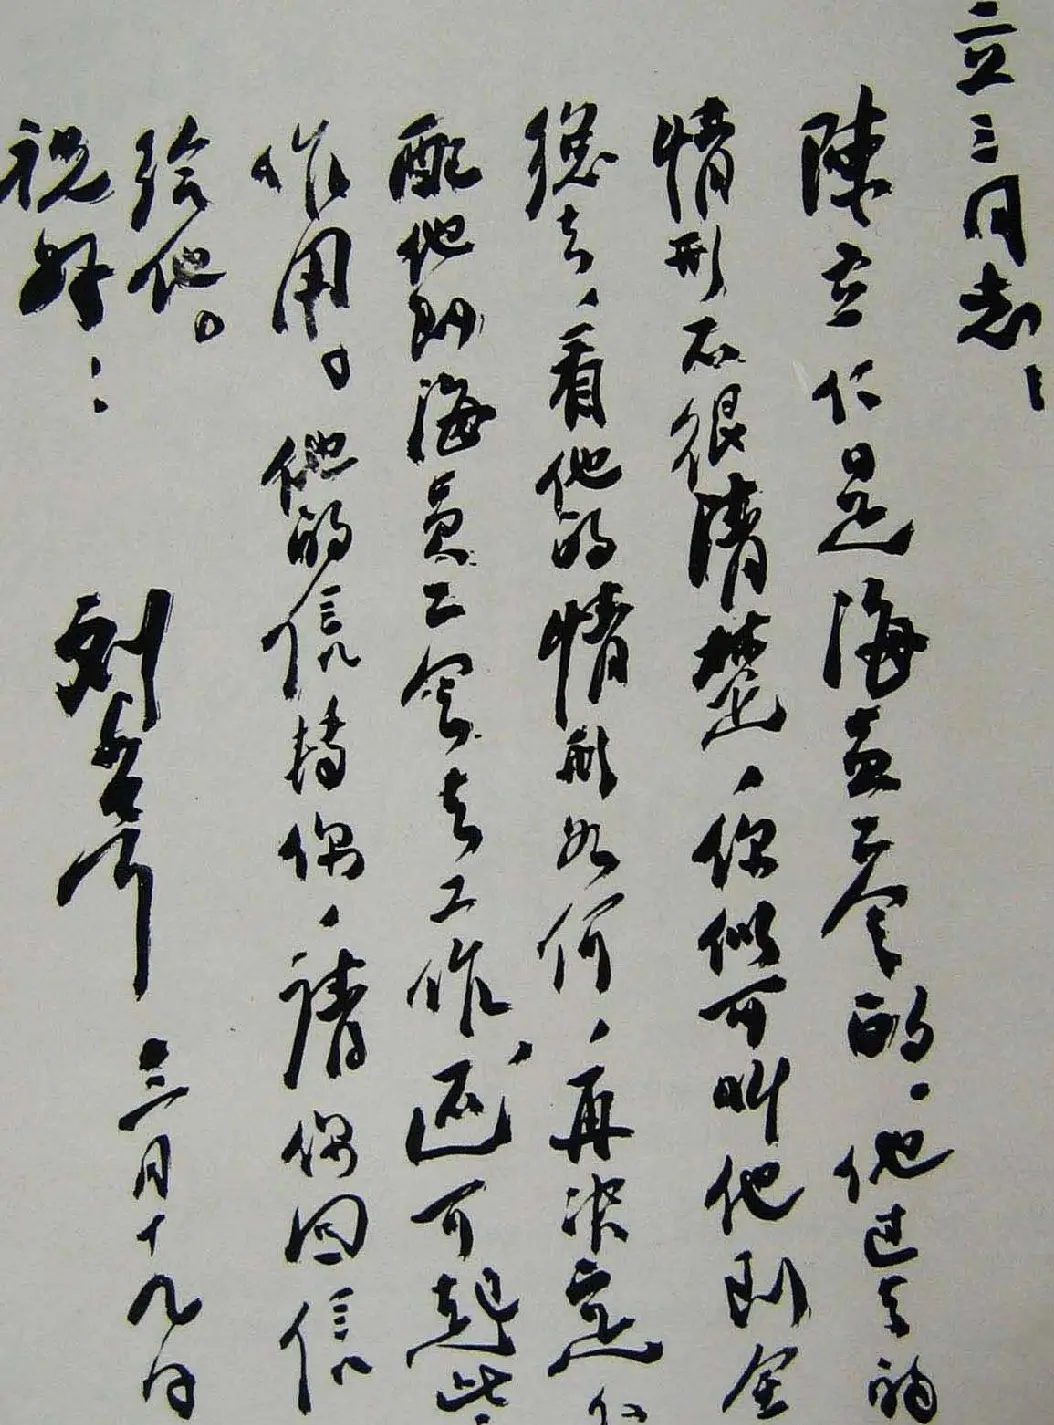 立三同志：
陳立仁是海员工会的，他过去的
情形不很清楚，你似可叫他到全
總去，看他的情形如何，再决定分
配他到海员工会去工作，还可起些
作用。他的信转你，请你回信
给他。
祝好！
刘少奇
三月十九日